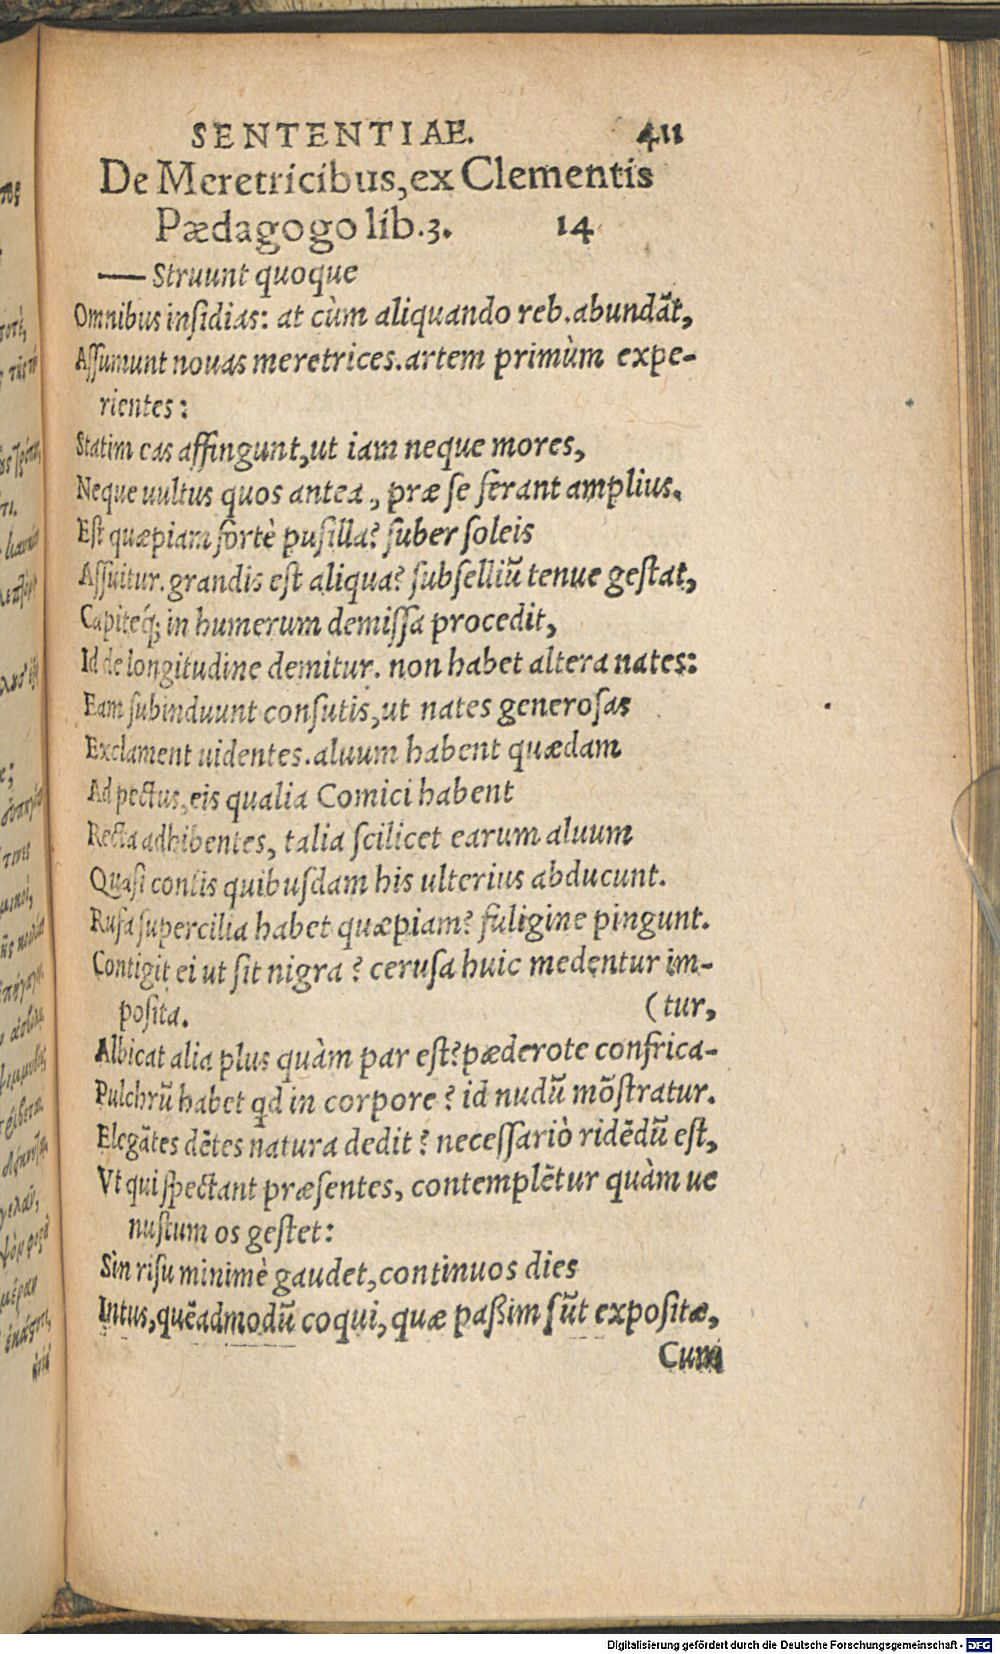 SENTENTIAE. 411
De Meretricibus, ex Clementis
Pædagogo lib. 3. 14
— Struunt quoque
Omnibus insidias: at cùm aliquando reb. abundãt,
Assumunt nouas meretrices. artem primùm expe-
rientes:
Statim eas affingunt, ut iam neque mores,
Neque uultus quos antea, præ se ferant amplius.
Est quæpiam fortè pusilla? suber soleis
Assuitur. grandis est aliqua? subselliũ tenue gestat,
Capiteq́; in humerum demissa procedit,
Id de longitudine demitur. non habet altera nates:
Eam subinduunt consutis, ut nates generosas
Exclament uidentes. aluum habent quædam
Ad pectus, eis qualia Comici habent
Recta adhibentes, talia scilicet earum aluum
Quasi contis quibusdam his ulterius abducunt.
Rufa supercilia habet quæpiam? fuligine pingunt.
Contigit ei ut sit nigra? cerusa huic medentur im-
posita. (tur,
Albicat alia plus quàm par est? pæderote confrica-
Pulchrũ habet qd in corpore? id nudũ mõstratur.
Elegãtes dẽtes natura dedit? necessariò ridẽdũ est,
Vt qui spectant præsentes, contemplẽtur quàm ue
nustum os gestet:
Sin risu minimè gaudet, continuos dies
Intus, quẽadmodũ coqui, quæ paßim sũt expositæ,
Cum
Digitalisierung gefördert durch die Deutsche Forschungsgemeinschaft - DFG